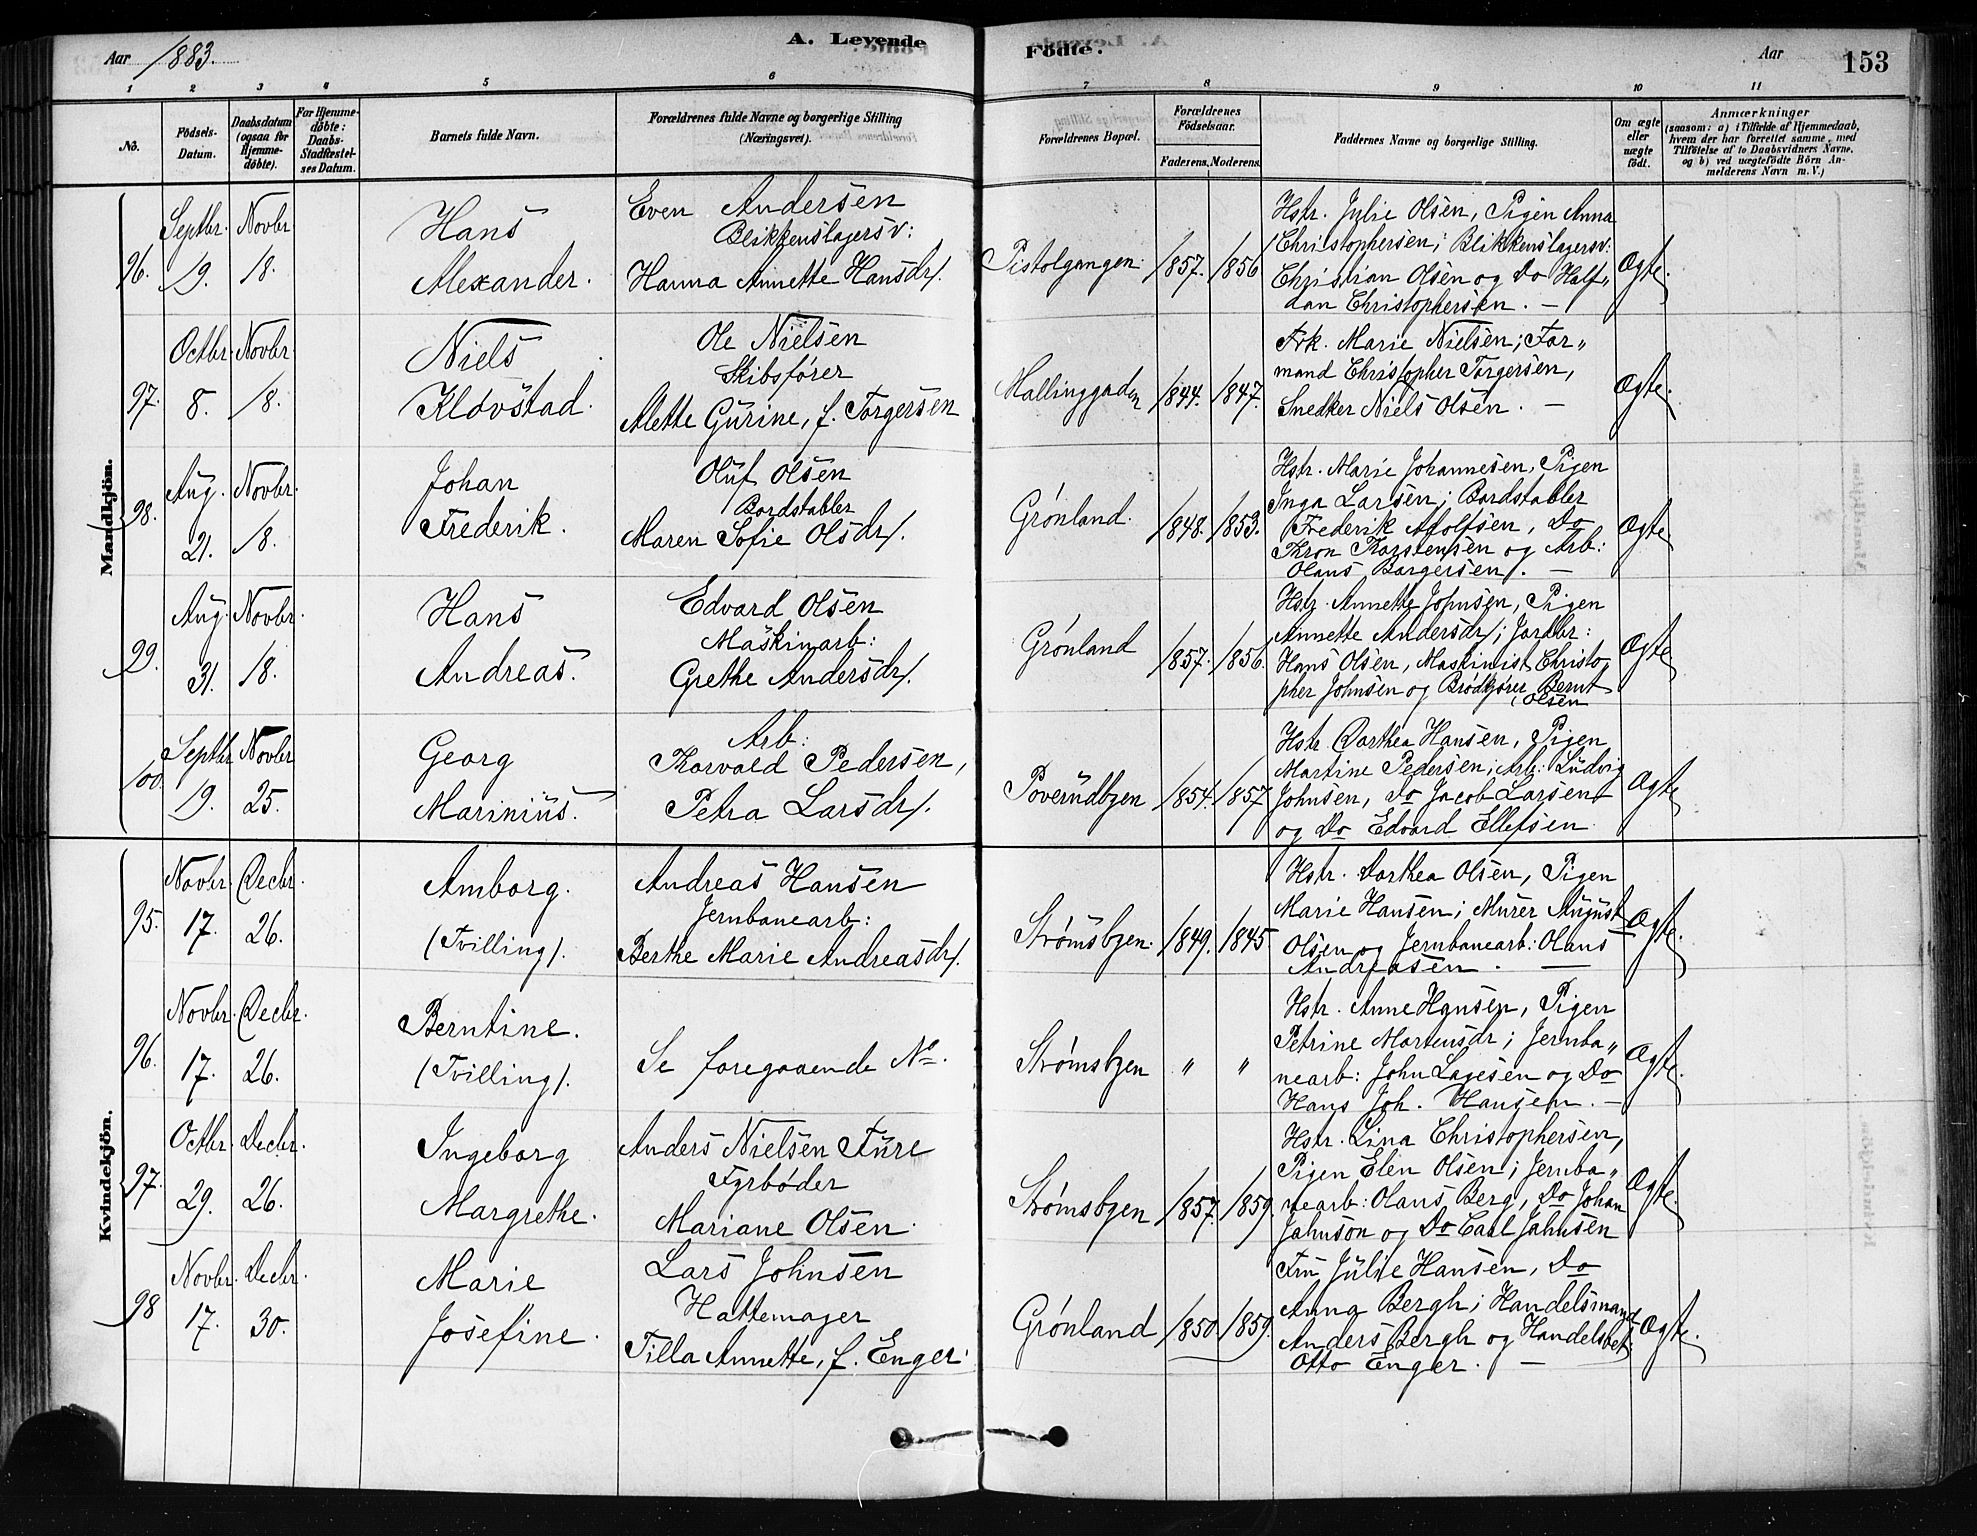 Aar 1883.
A. Levende
Fødte.
Aar
153
1 2 3 4 5 6 7 8 9 10 11
No.
Födsels-Datum.
Daabsdatum (ogsaa for Hjemmedöbte).
For Hjemmedöbte: Daabs-Stadfæstelses Datum.
Barnets fulde Navn.
Forældrenes fulde Navne og borgerlige Stilling (Næringsvei).
Forældrenes Bopæl.
Forældrenes Födselsaar.
Faderens. Moderens.
Faddernes Navne og borgerlige Stilling.
Om ægte eller uægte födt.
Anmærkninger
(saasom: a) i Tilfælde af Hjemmedaab, hvem der har forrettet samme, med Tilföielse af to Daabsvidners Navne, og b) ved uægtefödte Börn Anmelderens Navn m. V.)
Mandkjön.
96.
Septbr. 19.
Novbr 18.
Hans
Alexander.
Even Andersen
Blikkenslagersv:
Hanna Annette Hansdr/.
Pistolgangen.
1857. 1856
Hstr. Julie Olsen, Pigen Anna
Christophersen; Blikkenslagersv:
Christian Olsen og Do Half„
dan Christophersen. —
Ægte.
97.
Octbr. 8.
Novbr 18.
Niels
Klovstad.
Ole Nielsen
Skibsfører
Alette Gurine, f. Torgersen
Hallinggaden
1844. 1847.
Frk. Marie Nielsen; For„
mand Christopher Torgersen,
Snedker Niels Olsen. —
Ægte.
98.
Aug. 21.
Novbr. 18.
Johan
Frederik.
Oluf Olsen
Bordstabler
Maren Sofie Olsdr/.
Grønland.
1848. 1853.
Hstr. Marie Johannesen, Pigen
Inga Larsen; Bordstabler
Frederik Adolfsen, Do
Thron Thorstensen og Arb:
Olaus Borgersen/. —
Ægte
99.
Aug. 31.
Novbr. 18.
Hans
Andreas.
Edvard Olsen
Maskinarb:
Grethe Andersdr/.
Grønland
1857. 1856.
Hstr. Annette Johnsen, Pigen
Annette Andersdr/; Jordbr:
Hans Olsen, Maskinist Christo
pher Johnsen og Brødkjører Bernt
(Olsen
Ægte
100.
Septbr 19.
Novbr 25.
Georg
Marinius.
Arb:
Thorvald Pedersen,
Petra Larsdr/.
Poverudbyen
1854. 1857
Hstr. Dorthea Hansen, Pigen
Martine Pedersen; Arb: Ludvig
Johnsen, Do Jacob Larsen
og Do Edvard Ellefsen
Ægte
Kvindekjön.
95.
Novbr. 17.
Decbr. 26.
Amborg.
(Tvilling/.
Andreas Hansen
Jernbanearb:
Berthe Marie Andreasdr/.
Strømsbyen.
1849. 1845
Hstr. Dorthea Olsen, Pigen
Marie Hansen; Murer August
Olsen og Jernbanearb: Olaus
Andreasen. —
Ægte.
96.
Novbr. 17.
Decbr. 26.
Berntine.
(Tvilling/.
Se foregaaende No.
Strømsbyen
„ „
Hstr. Anne Hansen, Pigen
Petrine Mortensdr; Jernba„
nearb: John Lagesen og Do
Hans Joh. Hansen. —
Ægte.
97.
Octbr. 29.
Decbr. 26.
Ingeborg
Margrethe.
Anders Nielsen Fure
Fyrbøder
Mariane Olsen.
Strømsbyen
1857. 1859
Hstr. Lina Christophersen,
Pigen Elen Olsen; Jernba„
nearb: Olaus Berg, Do Johan
Johnson og Do Carl Johnsen
Ægte.
98
Novbr. 17.
Decbr. 30.
Marie
Josefine.
Lars Johnsen
Hattemager
Tilla Annette, f. Enger.
Grønland
1850 1859.
Fru Julie Hansen, Do
Anna Bergh; Handelsmand
Anders Bergh og Handelsbet:
Otto Enger. —
Ægte.